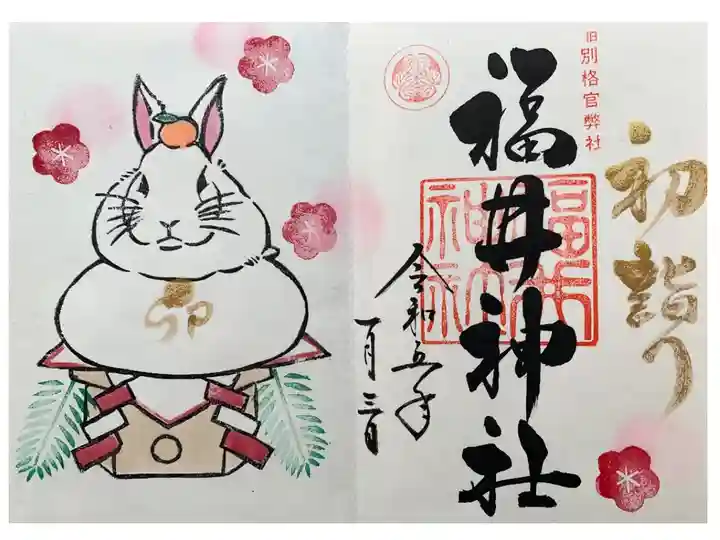 初詣り
旧別格官弊社
福井神社
福井神社
令和五年
一月三日
卯